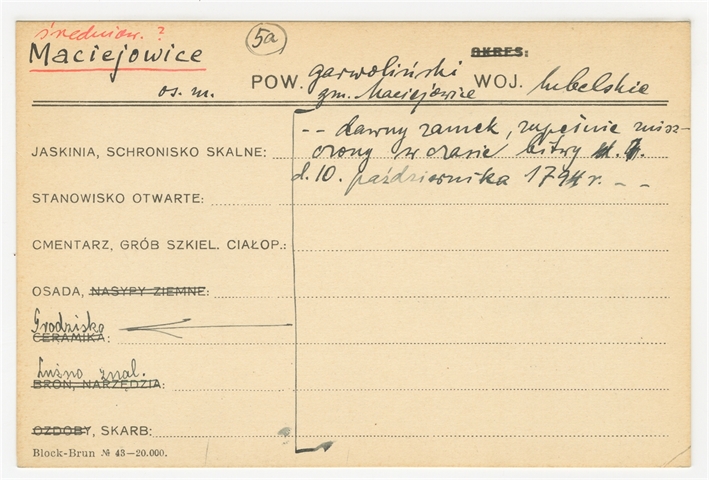 średniow. ?
5a
Maciejowice
OKRES:
POW. garwoliński WOJ. lubelskie
os. m. gm. Maciejowice
-- dawny zamek, zupełnie znisz-
JASKINIA, SCHRONISKO SKALNE: czony w czasie bitwy
d. 10. października 1794 r. --
STANOWISKO OTWARTE:
CMENTARZ, GRÓB SZKIEL. CIAŁOP.:
OSADA, NASYPY ZIEMNE:
Grodzisko
CERAMIKA:
Luźno znal.
BROŃ, NARZĘDZIA:
OZDOBY, SKARB:
Block-Brun № 43-20.000.